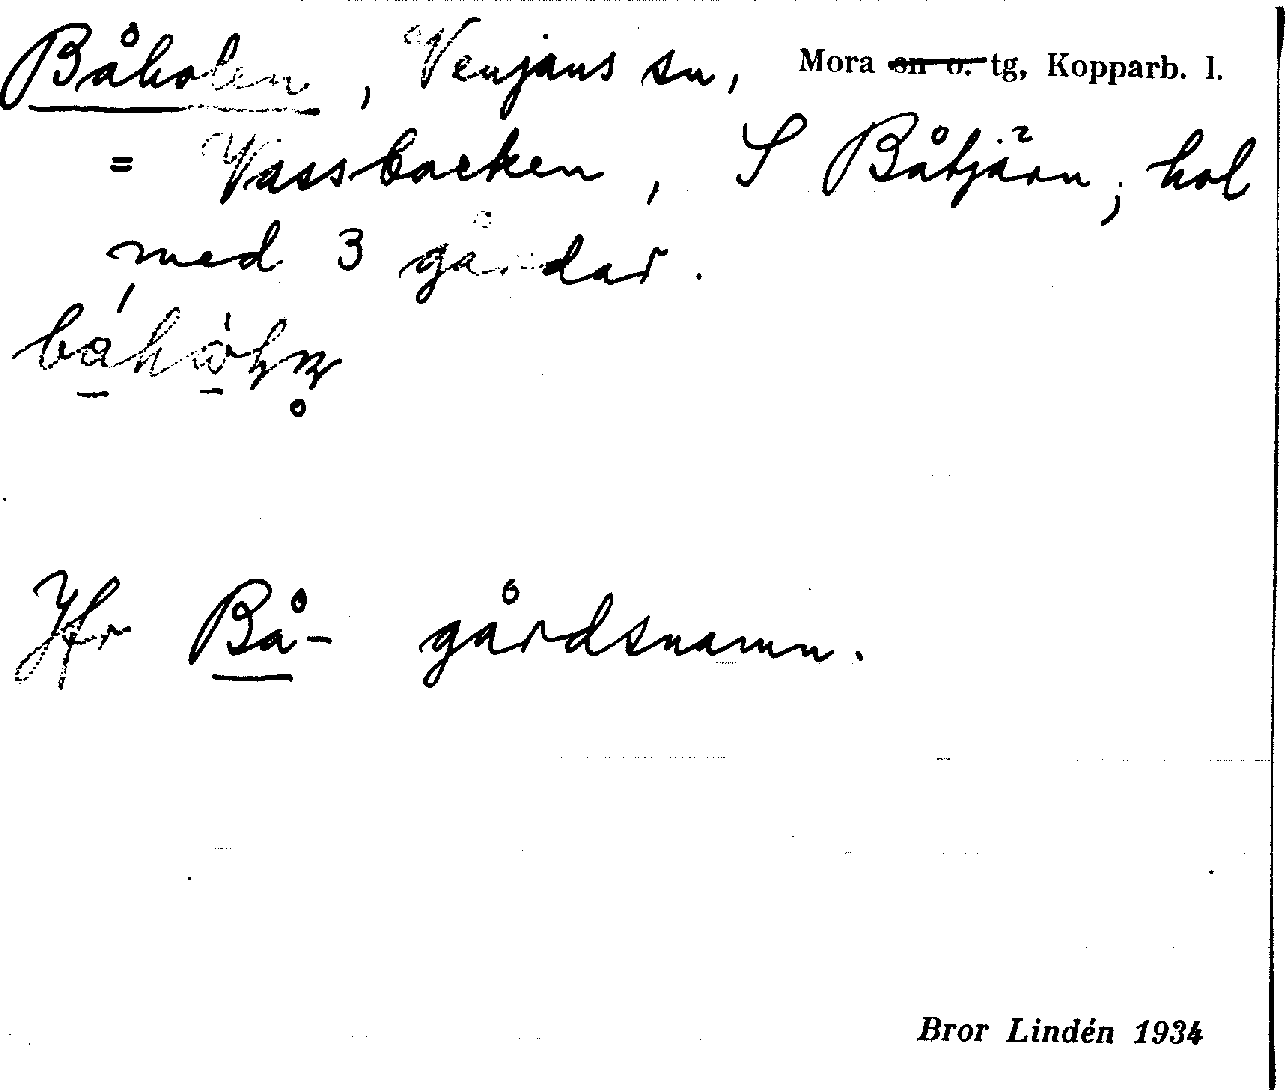 Båholen, Venjans sn, Mora sn o. tg, Kopparb. l.
= Vassbacken, S Båtjärn; hol
med 3 gårdar.
Jfr Bå- gårdsnamn.
Bror Lindén 1934